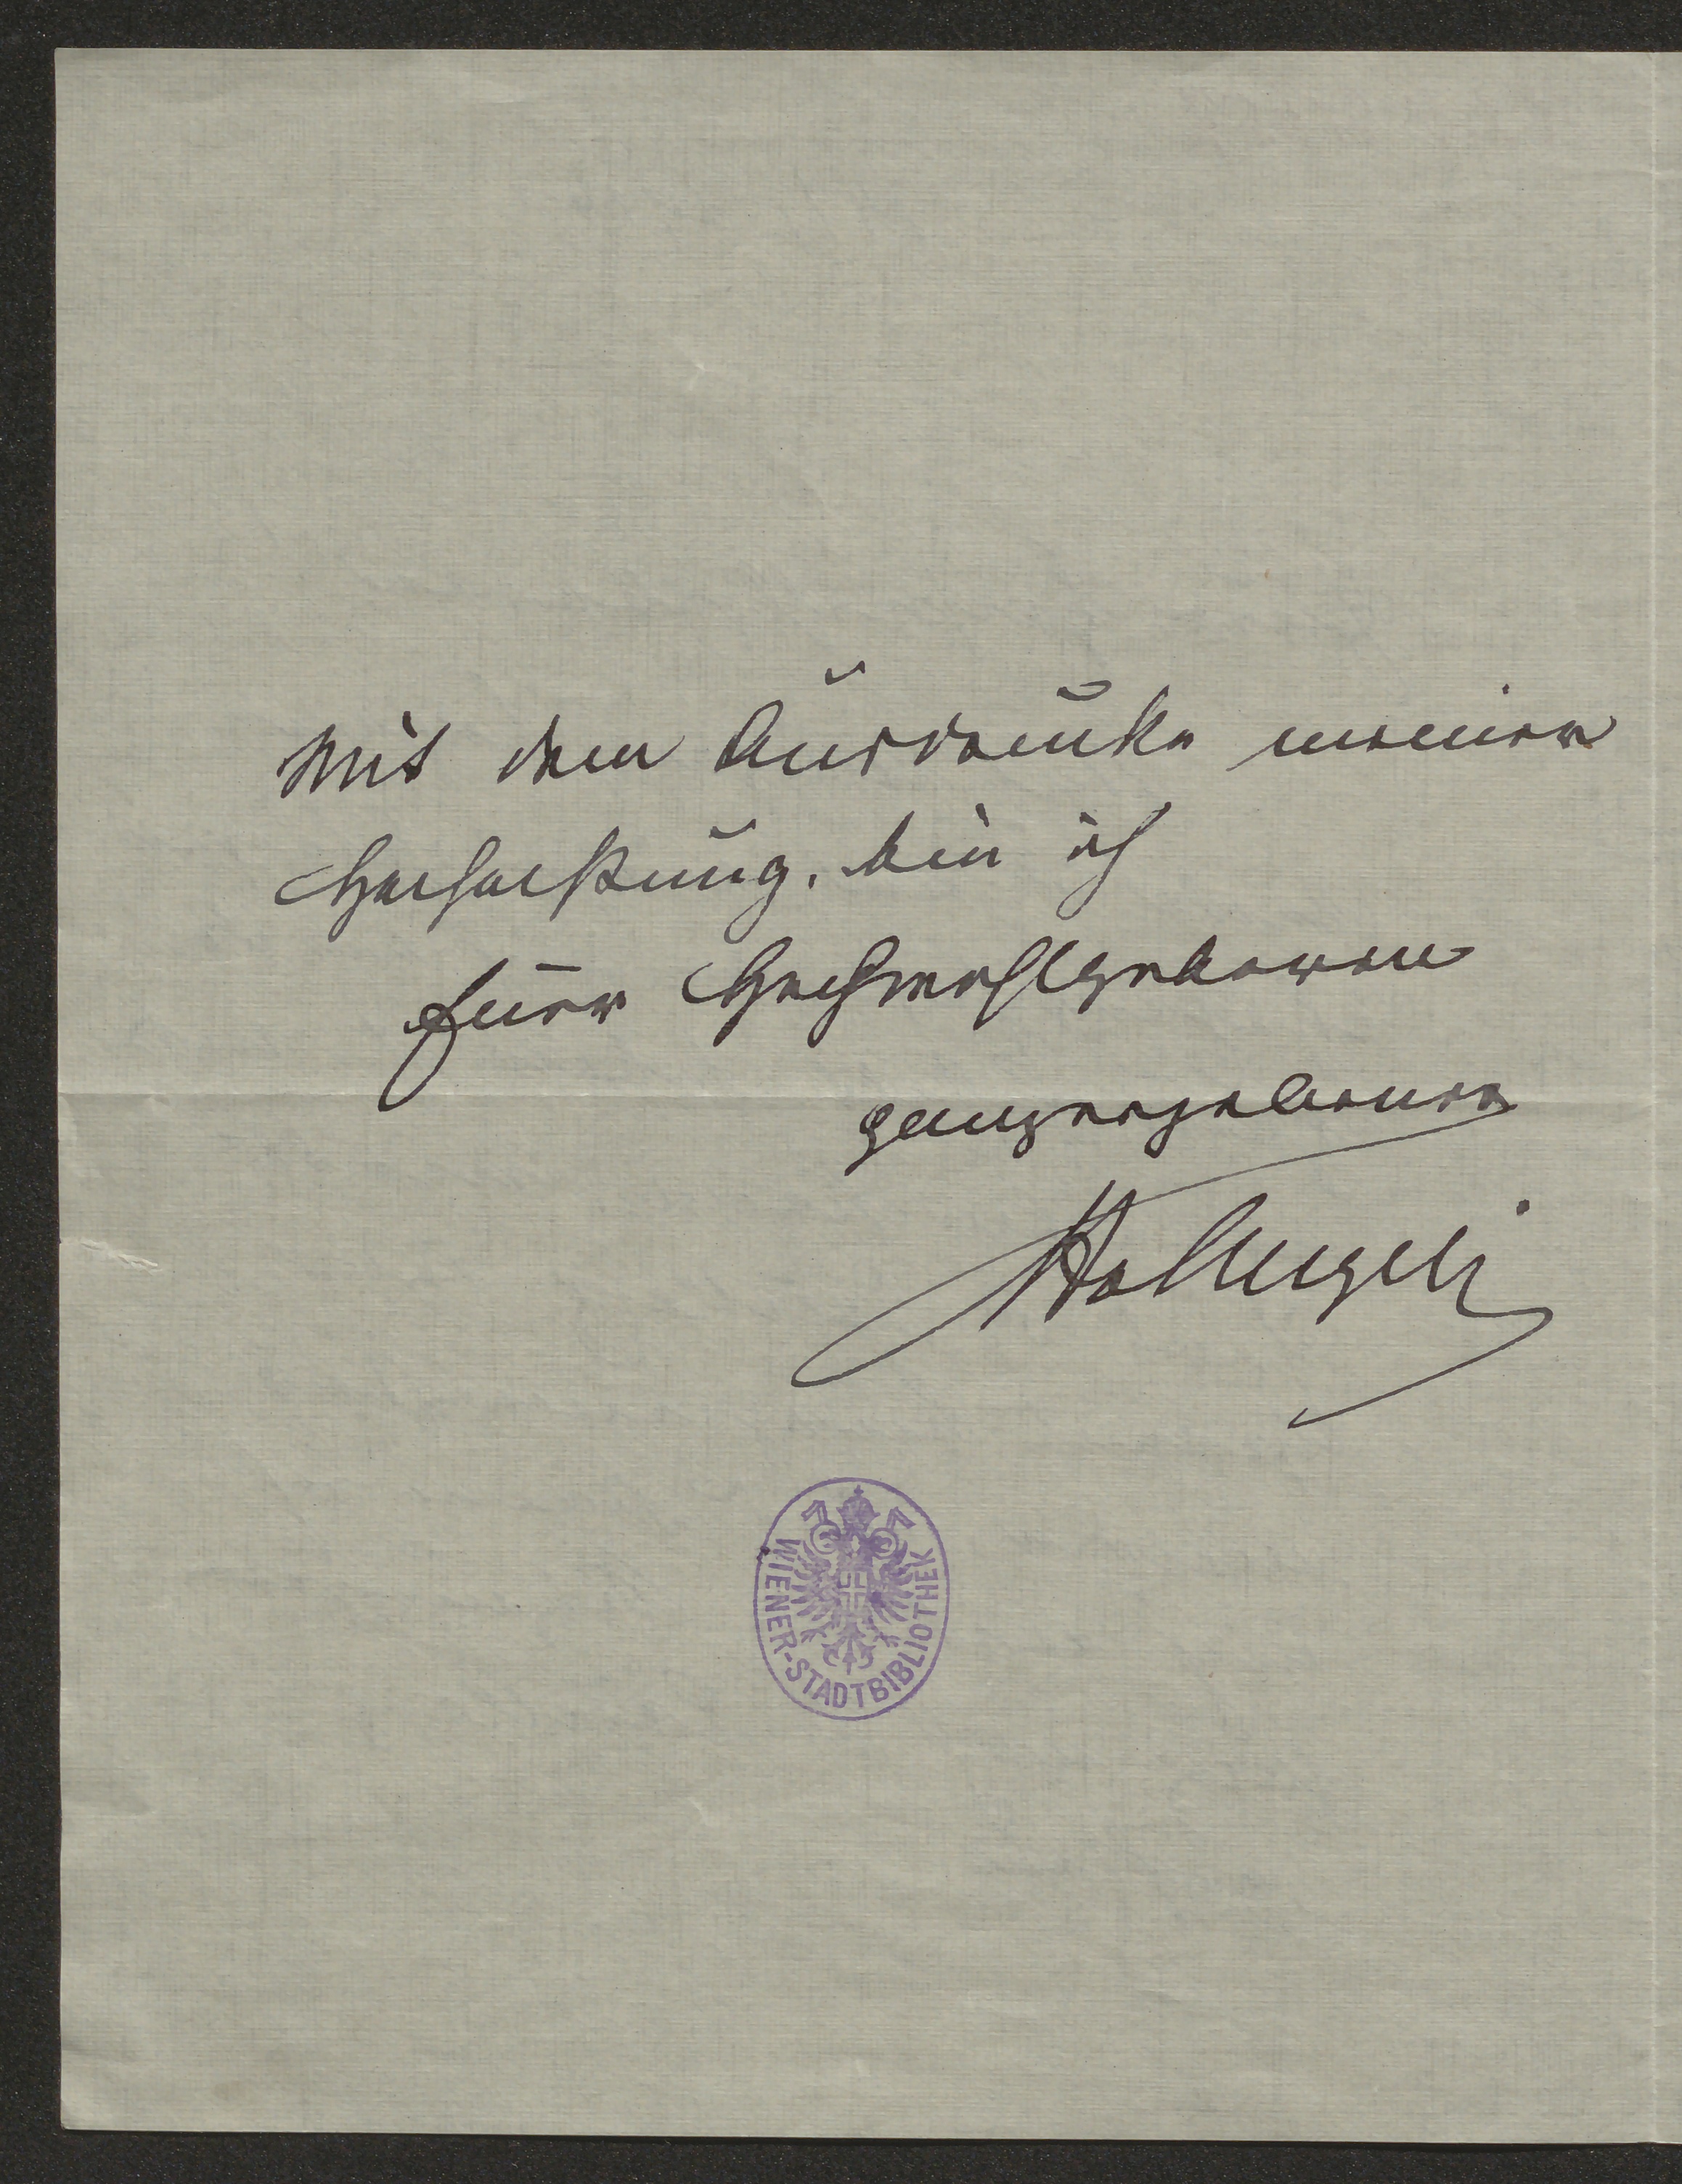 Mit dem Ausdrucke meiner
Hochachtung, bin ich
Euer Hochwohlgeboren
ganz ergebener
WIENER-STADTBIBLIOTHEK